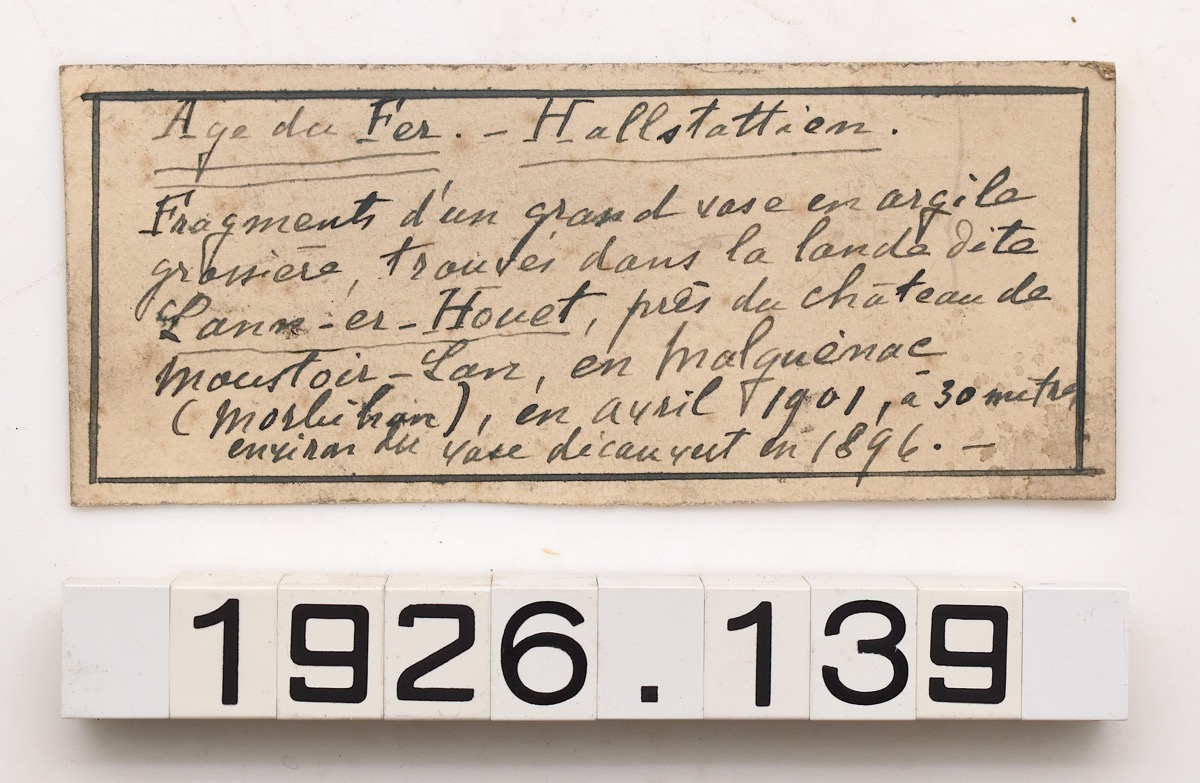 Age du Fer. - Hallstattien.
Fragments d'un grand vase en argile
grossière, trouvés dans la lande dite
Lann-er-Houet, près du château de
Moustoir-Lan, en Malguénac
(Morbihan), en avril 1901, à 30 mètres
environ du vase découvert en 1896. -
1926.139